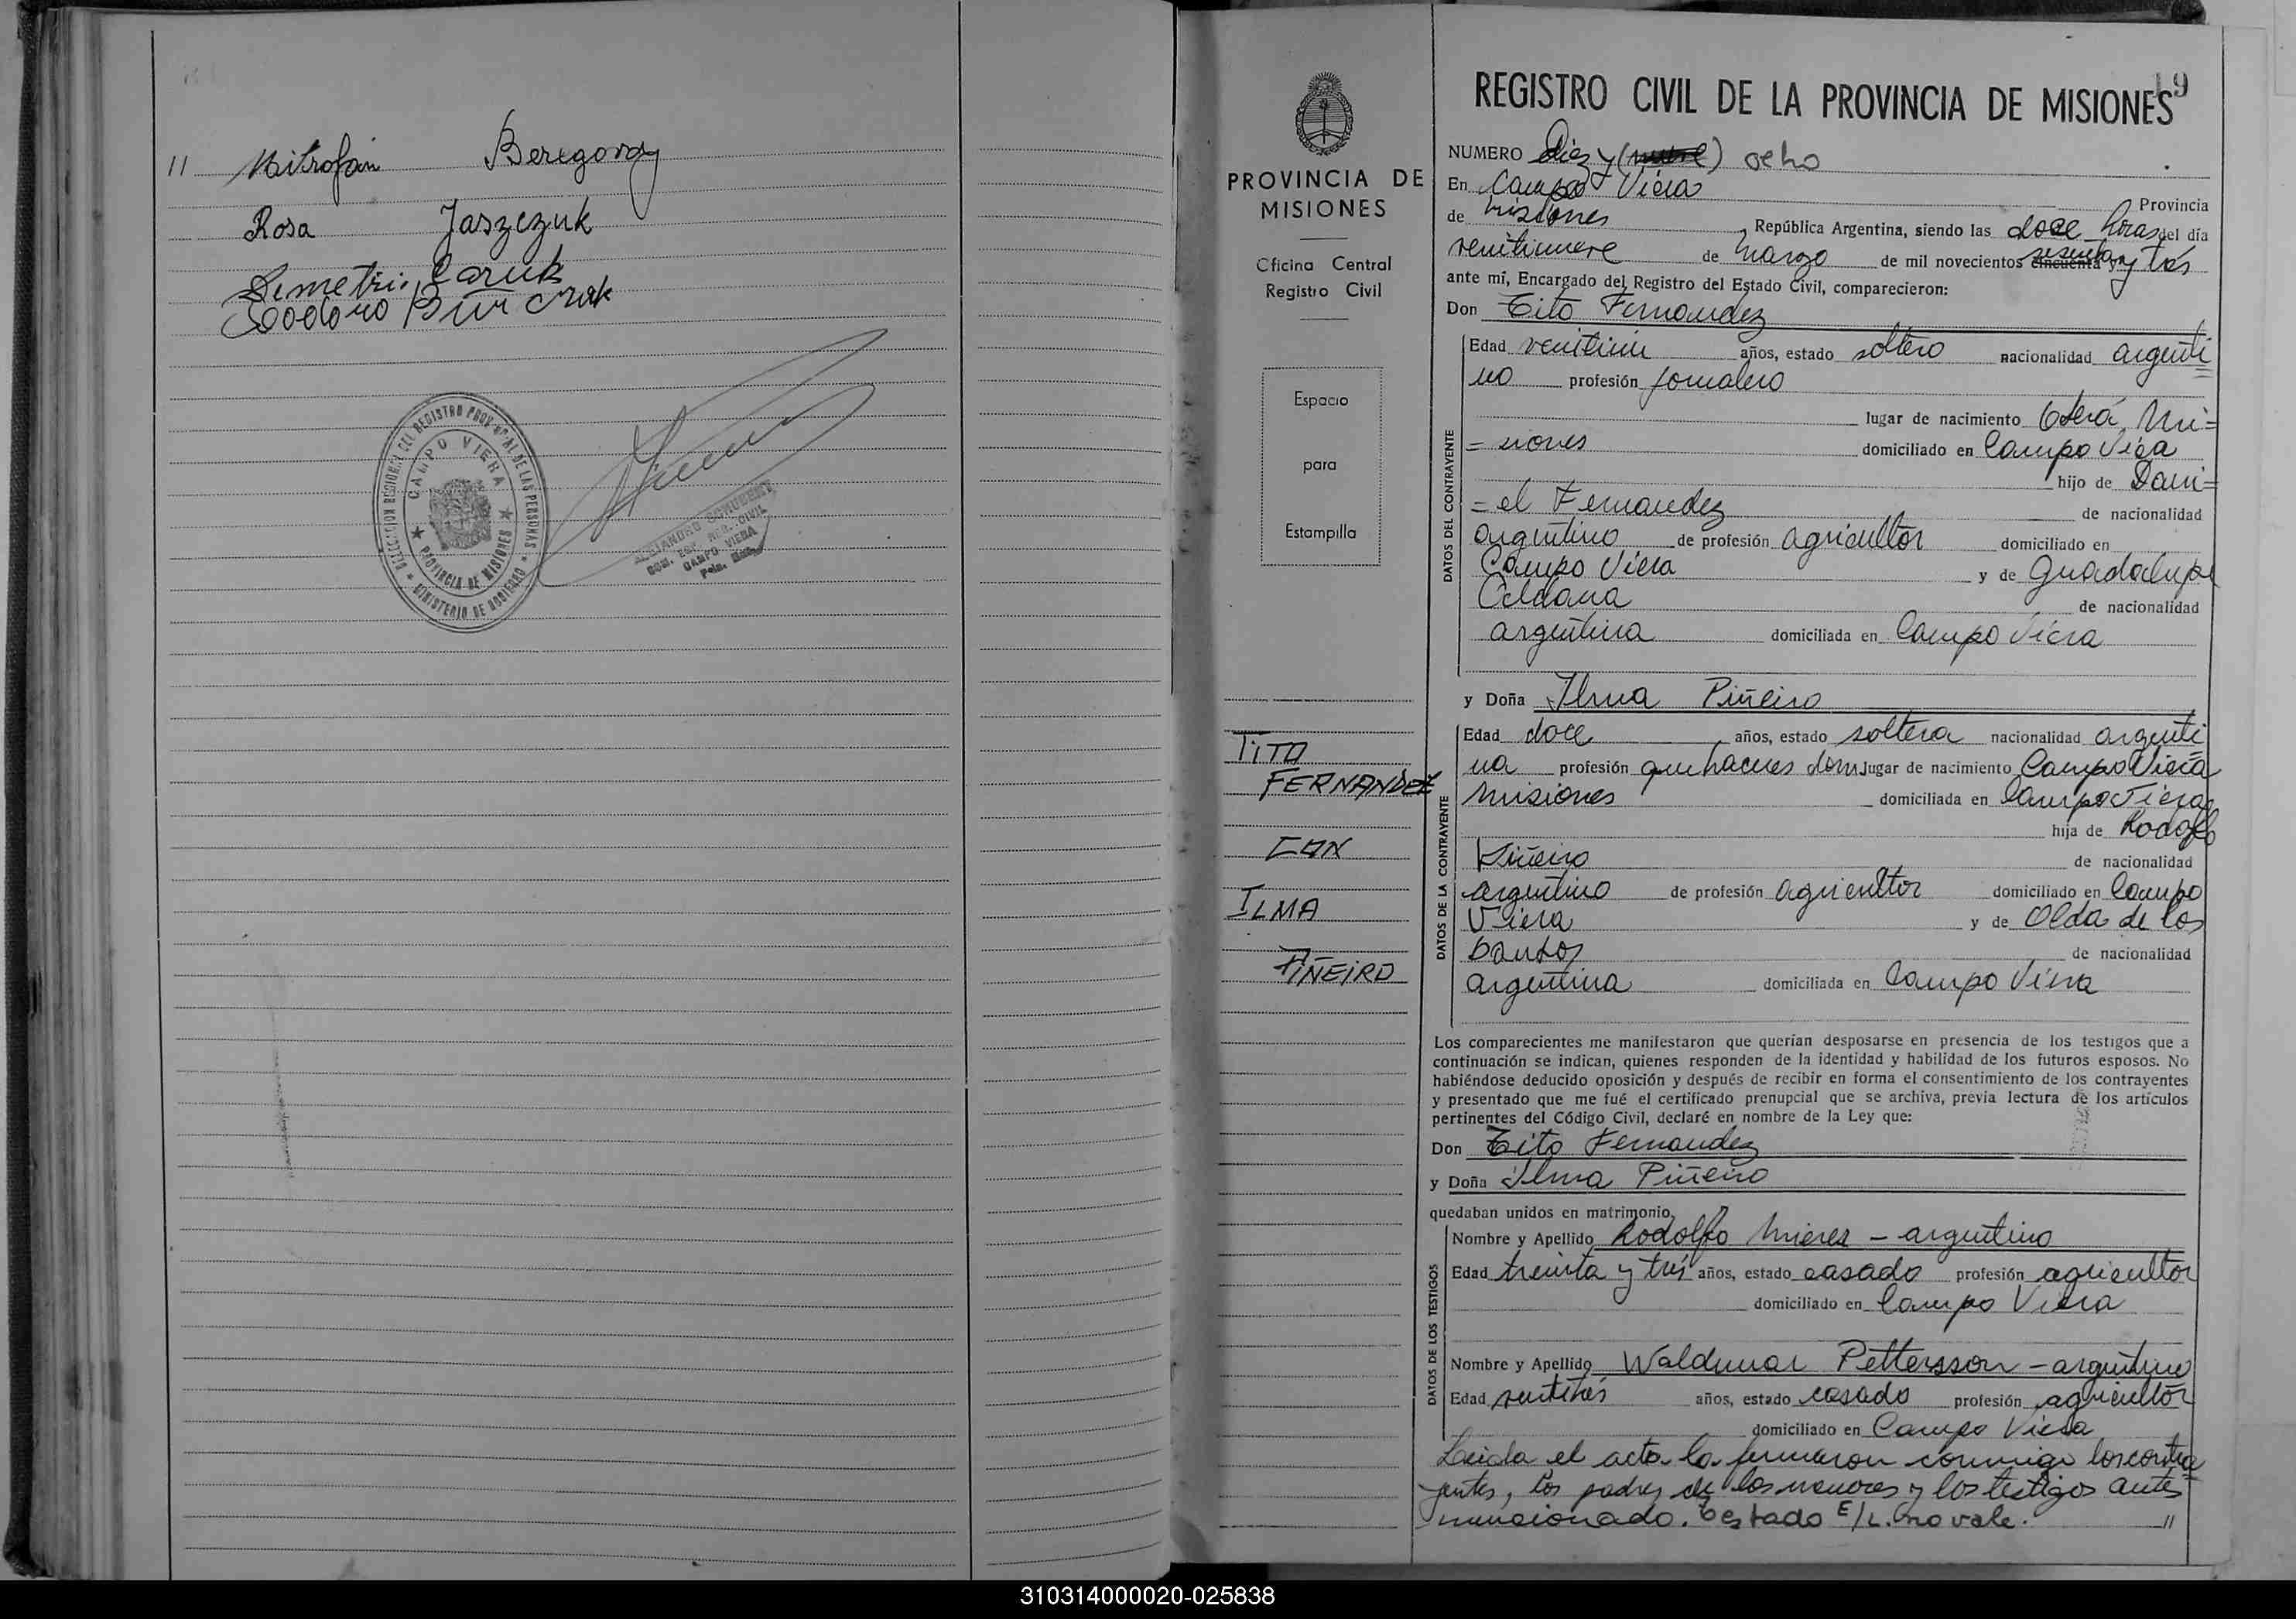 11 Mitrofan Beregovoy
Rosa Jaszczuk
Demetrio
Teodoro
DIRECCION REGIONAL DEL REGISTRO PROVINCIAL DE LAS PERSONAS
CAMPO VIERA
PROVINCIA DE MISIONES
MINISTERIO DE GOBIERNO
ALEJANDRO
CAMPO VIERA
PROVINCIA DE
MISIONES
Oficina Central
Registro Civil
Espacio
para
Estampilla
TITO
FERNANDEZ
CON
ILMA
PIÑEIRO
19
REGISTRO CIVIL DE LA PROVINCIA DE MISIONES
NUMERO Diez y (nueve) ocho
En Campo Viera
Provincia
de Misiones, República Argentina, siendo las doce horas del día
veintinueve de marzo de mil novecientos cincuenta y sesenta y tres
ante mí, Encargado del Registro del Estado Civil, comparecieron:
Don Tito Fernandez
DATOS DEL CONTRAYENTE
Edad años, estado soltero nacionalidad argenti
no profesión jornalero
lugar de nacimiento Oberá, Mi=
=siones domiciliado en Campo Viera
hijo de Dani=
=el Fernandez de nacionalidad
argentino de profesión agricultor domiciliado en
Campo Viera y de Guadalupe
de nacionalidad
argentina domiciliada en Campo Viera
y Doña Ilma Piñeiro
DATOS DE LA CONTRAYENTE
Edad doce años, estado soltera nacionalidad argenti
na profesión quehaceres dom lugar de nacimiento Campo Viera
Misiones domiciliada en Campo Viera
hija de Rodolfo
Piñeiro de nacionalidad
argentino de profesión agricultor domiciliado en Campo
Viera y de Olda de los
Santos de nacionalidad
argentina domiciliada en Campo Viera
Los comparecientes me manifestaron que querían desposarse en presencia de los testigos que a
continuación se indican, quienes responden de la identidad y habilidad de los futuros esposos. No
habiéndose deducido oposición y después de recibir en forma el consentimiento de los contrayentes
y presentado que me fué el certificado prenupcial que se archiva, previa lectura de los artículos
pertinentes del Código Civil, declaré en nombre de la Ley que:
Don Tito Fernandez
y Doña Ilma Piñeiro
quedaban unidos en matrimonio.
DATOS DE LOS TESTIGOS
Nombre y Apellido Rodolfo Mieres - argentino
Edad treinta y tres años, estado casado profesión agricultor
domiciliado en Campo Viera
Nombre y Apellido Waldemar Pettersson - argentino
Edad veintitres años, estado casado profesión agricultor
domiciliado en Campo Viera
Leida el acta la firmaron conmigo los contra
yentes, los padres de los menores y los testigos antes
mencionado. Testado E/L. no vale. //
310314000020-025838